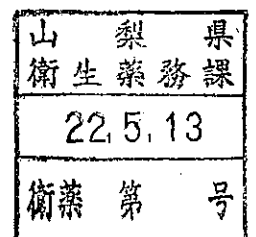 山梨県
衛生薬務課
22.5.13
衛薬第 号